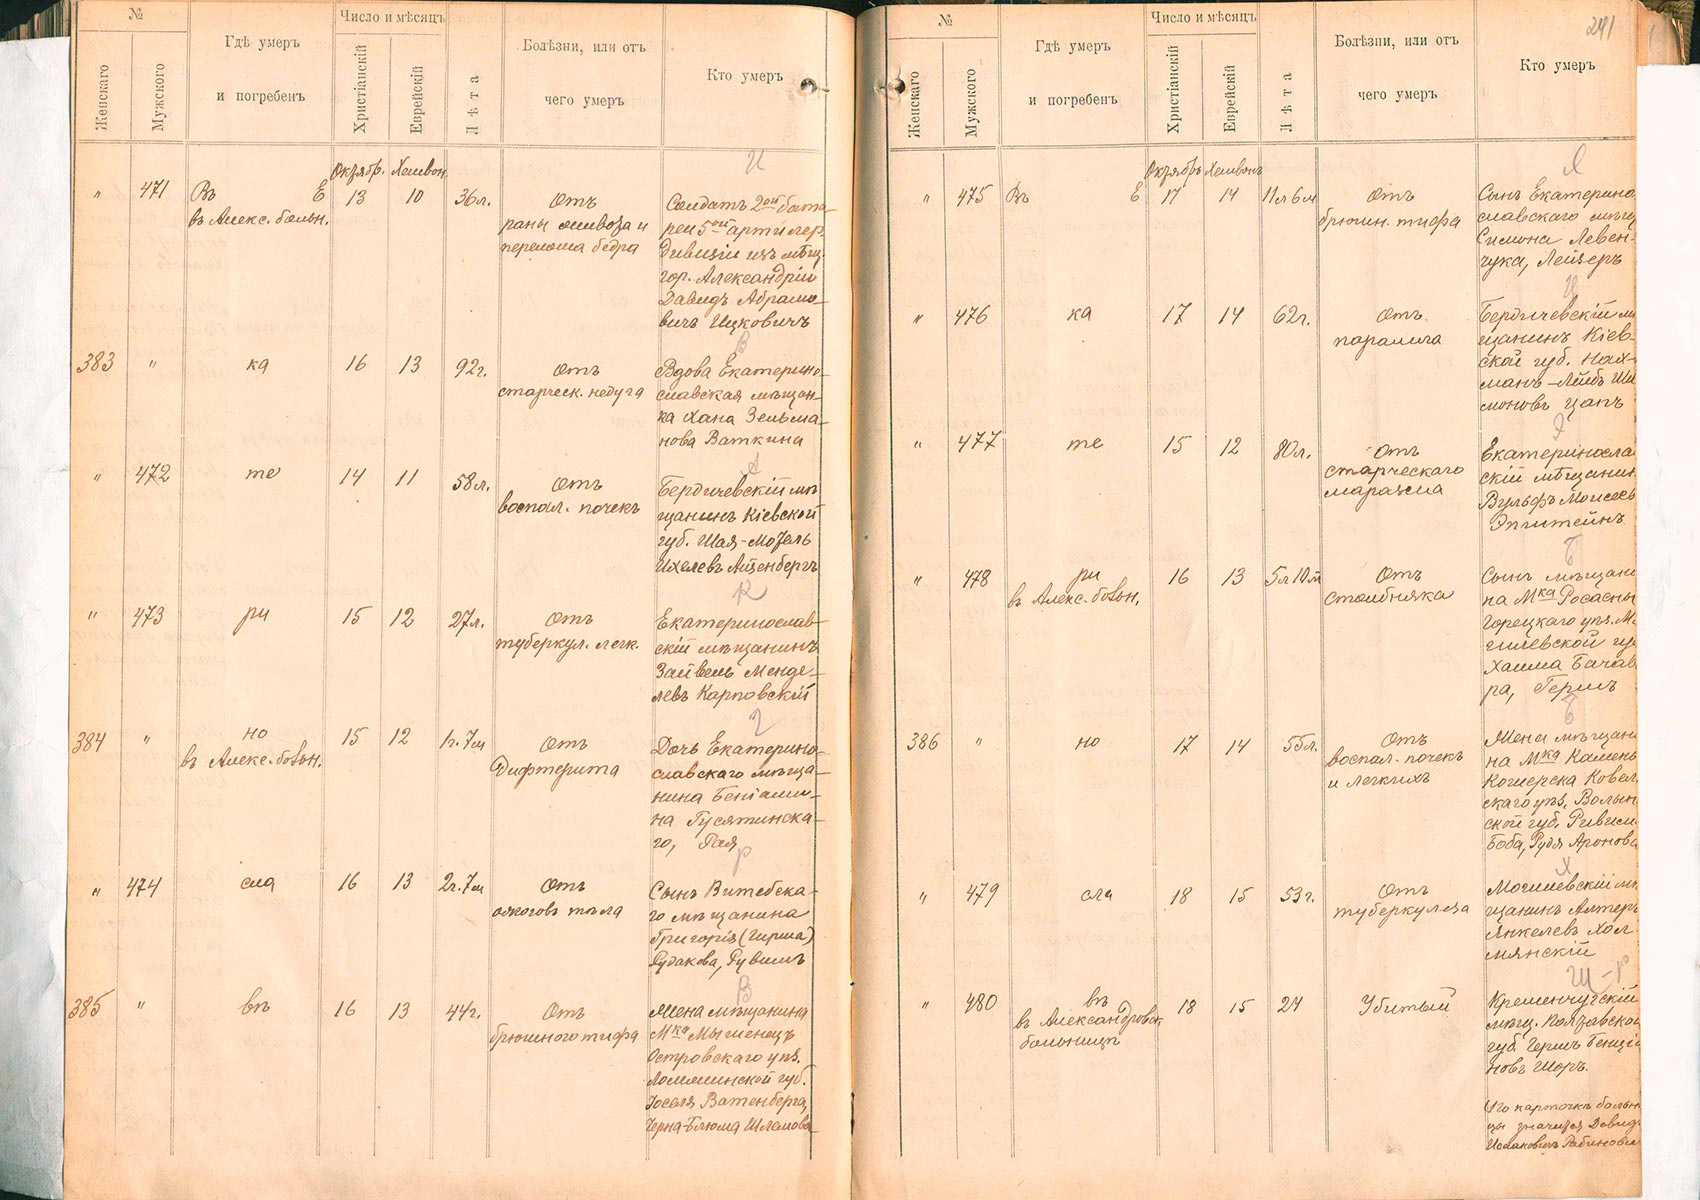 №
Число и мѣсяцъ
Гдѣ умеръ
и погребенъ
Болѣзни, или отъ
чего умеръ
Кто умеръ
Женскаго
Мужского
Христіанскій
Еврейскій
Лѣта
И
Октябр. Хешвон.
" 471 Въ Е 13 10 36 л. Отъ
въ Алекс. больн.
раны живота и
перелома бедра
Солдатъ 2ой бата-
реи 5ой артилер.
дивизіи изъ мѣщ.
гор. Александріи
Давидъ Абрамо-
вичъ Ицковичъ
В
383 " ка 16 13 92 г. Отъ
старческ. недуга
Вдова Екатерино-
славская мѣщан-
ка Хана Зельма-
нова Ваткина
А
" 472 те 14 11 58 л. Отъ
воспал. почекъ
Бердичевскій мѣ
щанинъ Кіевской
губ. Шая-Мотель
Ихелевъ Айзенбергъ
К
" 473 ри 15 12 27 л. Отъ
туберкул. легк.
Екатеринослав-
скій мѣщанинъ
Зайвель Менде-
левъ Карповскій
Г
384 " но 15 12 1 г. 7 м Отъ
въ Алекс. больн.
Дифтерита
Дочь Екатерино-
славскаго мѣща-
нина Беніами-
на Гусятинска-
го, Рая
Р
" 474 сла 16 13 2 г. 7 м Отъ
ожоговъ тѣла
Сынъ Витебска-
го мѣщанина
Григорія (Гирша)
Рудакова, Рувимъ
В
385 " въ 16 13 44 г. Отъ
брюшного тифа
Жена мѣщанина
Мка Мышенецъ
Островскаго уѣз.
Ломжинской губ.
Іоселя Ватенберга,
Черна-Блюма Шлемова
241
№
Число и мѣсяцъ
Гдѣ умеръ
и погребенъ
Болѣзни, или отъ
чего умеръ
Кто умеръ
Женскаго
Мужского
Христіанскій
Еврейскій
Лѣта
Л
Октябрь Хешвонъ
" 475 Въ Е 17 14 11 л 6 м Отъ
брюшн. тифа
Сынъ Екатерино
славскаго мѣщ
Симона Левен-
чука, Лейзеръ
Ц
" 476 ка 17 14 62 г. Отъ
паралича
Бердичевскій мѣ
щанинъ Кіев-
ской губ. Нах-
манъ-Лейбъ Ши
моновъ Цапъ
Э
" 477 те 15 12 80 л. Отъ
старческаго
маразма
Екатеринослав
скій мѣщанин
Вульфъ Моисеев
Эпштейнъ
Б
" 478 ри 16 13 5 л 10 м Отъ
въ Алекс. больн.
столбняка
Сынъ мѣщани
на Мка Росасны
Горецкаго уѣз. Мо
гилевской гу
Хаима Бачав
ра, Гершъ
Б
386 " но 17 14 55 л. Отъ
воспал. почекъ
и легкихъ
Жена мѣщани
на Мка Камень
Кошерска Ковел
скаго уѣз. Волын
ской губ. Рувима
Боба, Рудя Аронова
Х
" 479 сла 18 15 53 г. Отъ
туберкулеза
Могилевскій мѣ
щанинъ Алтеръ
Янкелевъ Хол-
мянскій
Ш-Р
" 480 въ 18 15 24 Убитый
въ Александровск
больницѣ
Кременчугскій
мѣщ. Полтавской
губ. Гершъ Бенціо
новъ Шоръ.
По карточкѣ больни
цы значится Давидъ
Исааковичъ Рабинович